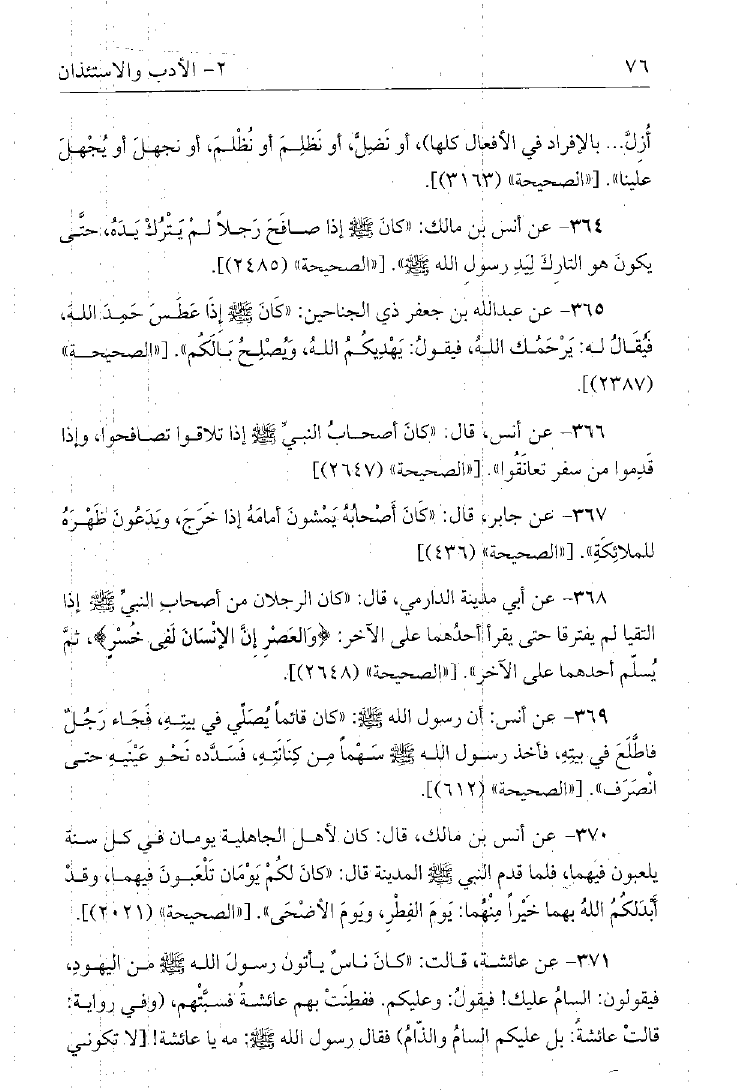 ٧٦
٢- الأدب والاستئذان
أُزِلَّ... بالإفراد في الأفعال كلها)، أو نَضِلَّ، أو نَظلِمَ أو نُظْلمَ، أو نجهلَ أو يُجْهلَ
علينا». [«الصحيحة» (٣١٦٣)].
٣٦٤- عن أنس بن مالك: «كانَ ﷺ إذا صافَحَ رَجلاً لمْ يَتْرُكْ يَدَهُ، حتَّى
يكونَ هو التاركَ لِيَدِ رسول الله ﷺ». [«الصحيحة» (٢٤٨٥)].
٣٦٥- عن عبدالله بن جعفر ذي الجناحين: «كَانَ ﷺ إِذَا عَطَسَ حَمِدَ اللهَ،
فيُقَالُ له: يَرْحَمُك اللهُ، فيقولُ: يَهْدِيكُمُ اللهُ، ويُصْلِحُ بَالَكُم». [«الصحيحة»
(٢٣٨٧)].
٣٦٦- عن أنس، قال: «كانَ أصحابُ النبيِّ ﷺ إذا تلاقوا تصافحوا، وإذا
قَدِموا من سفر تعانَقُوا». [«الصحيحة» (٢٦٤٧)]
٣٦٧- عن جابر، قال: «كَانَ أَصْحابُهُ يَمْشونَ أمامَهُ إذا خَرَجَ، ويَدَعُونَ ظَهْرَهُ
للملائِكَةِ». [«الصحيحة» (٤٣٦)]
٣٦٨- عن أبي مدينة الدارمي، قال: «كان الرجلان من أصحابِ النبيِّ ﷺ إذا
التقيا لم يفترقا حتى يقرأ أحدُهما على الآخر: ﴿وَالعَصْرِ إِنَّ الإنْسَانَ لَفِى خُسْرٍ﴾، ثمَّ
يُسلّم أحدهما على الآخر». [«الصحيحة» (٢٦٤٨)].
٣٦٩- عن أنس: أن رسول الله ﷺ: «كان قائماً يُصَلّي في بيتِهِ، فَجَاء رَجُلٌ
فاطَّلَعَ في بيتِهِ، فأخذ رسول الله ﷺ سَهْماً مِن كِنَانَتِهِ، فَسَدَّده نَحْو عَيْنَيهِ حتى
انْصَرَف». [«الصحيحة» (٦١٢)].
٣٧٠- عن أنس بن مالك، قال: كان لأهل الجاهلية يومان في كل سنة
يلعبون فيهما، فلما قدم النبي ﷺ المدينة قال: «كانَ لكُمْ يَوْمَان تَلْعَبونَ فيهما، وقدْ
أَبْدَلَكُمُ اللهُ بهما خَيْراً مِنْهُما: يَومَ الفِطْرِ، ويَومَ الأضْحَى». [«الصحيحة» (٢٠٢١)].
٣٧١- عن عائشة، قالت: «كانَ ناسٌ يأتون رسولَ الله ﷺ من اليهودِ،
فيقولون: السامُ عليك! فيقولُ: وعليكم. ففطِنَتْ بهم عائشةُ فسبَّتْهم، (وفي رواية:
قالتْ عائشةُ: بل عليكم السامُ والذَّامُ) فقال رسول الله ﷺ: مه يا عائشة! [لا تكوني